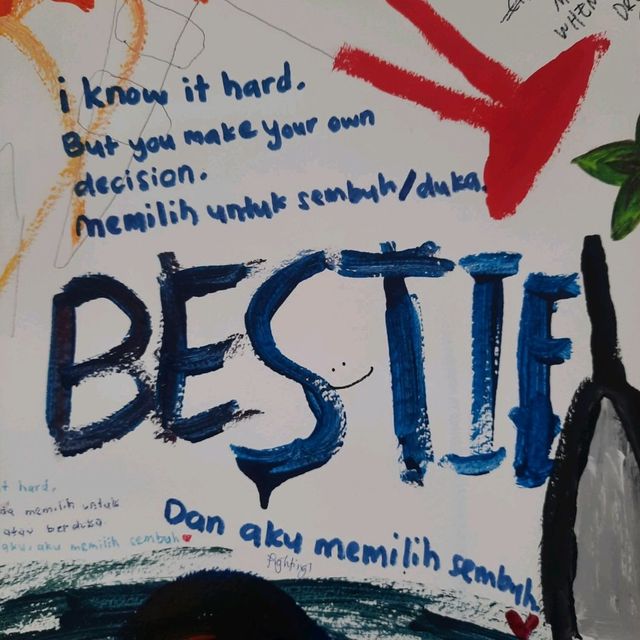 WHEN
i know it hard.
But you make your own
decision.
memilih untuk sembuh/duka.
BESTIE
t hard.
da memilih untuk
atau berduka.
aku, aku memilih sembuh
Dan aku memilih sembuh.
Fighting!